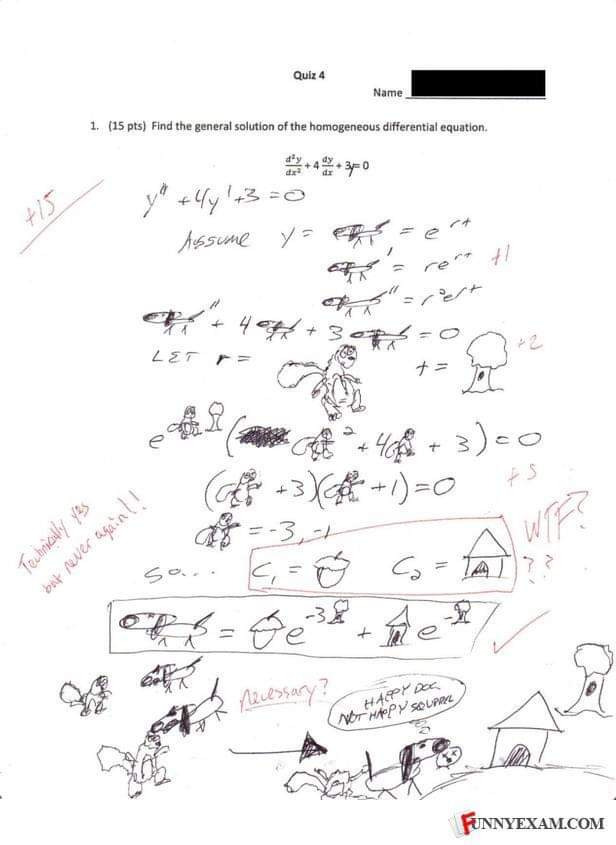 Quiz 4
Name
1. (15 pts) Find the general solution of the homogeneous differential equation.
d²y/dx² + 4 dy/dx + 3y = 0
+15
y" + 4y' + 3 = 0
Assume y = = e^rt
' = re^rt +1
" = r²e^rt
" + 4 + 3 = 0
LET r = t = +2
e ( ² + 4 + 3) = 0
( + 3)( + 1) = 0 +5
= -3, -1
Technically yes but never again!!
WTF? ??
so... C₁ = C₂ =
= e^-3 + e^-
necessary?
HAPPY DOG
NOT HAPPY SQUIRREL
FUNNYEXAM.COM